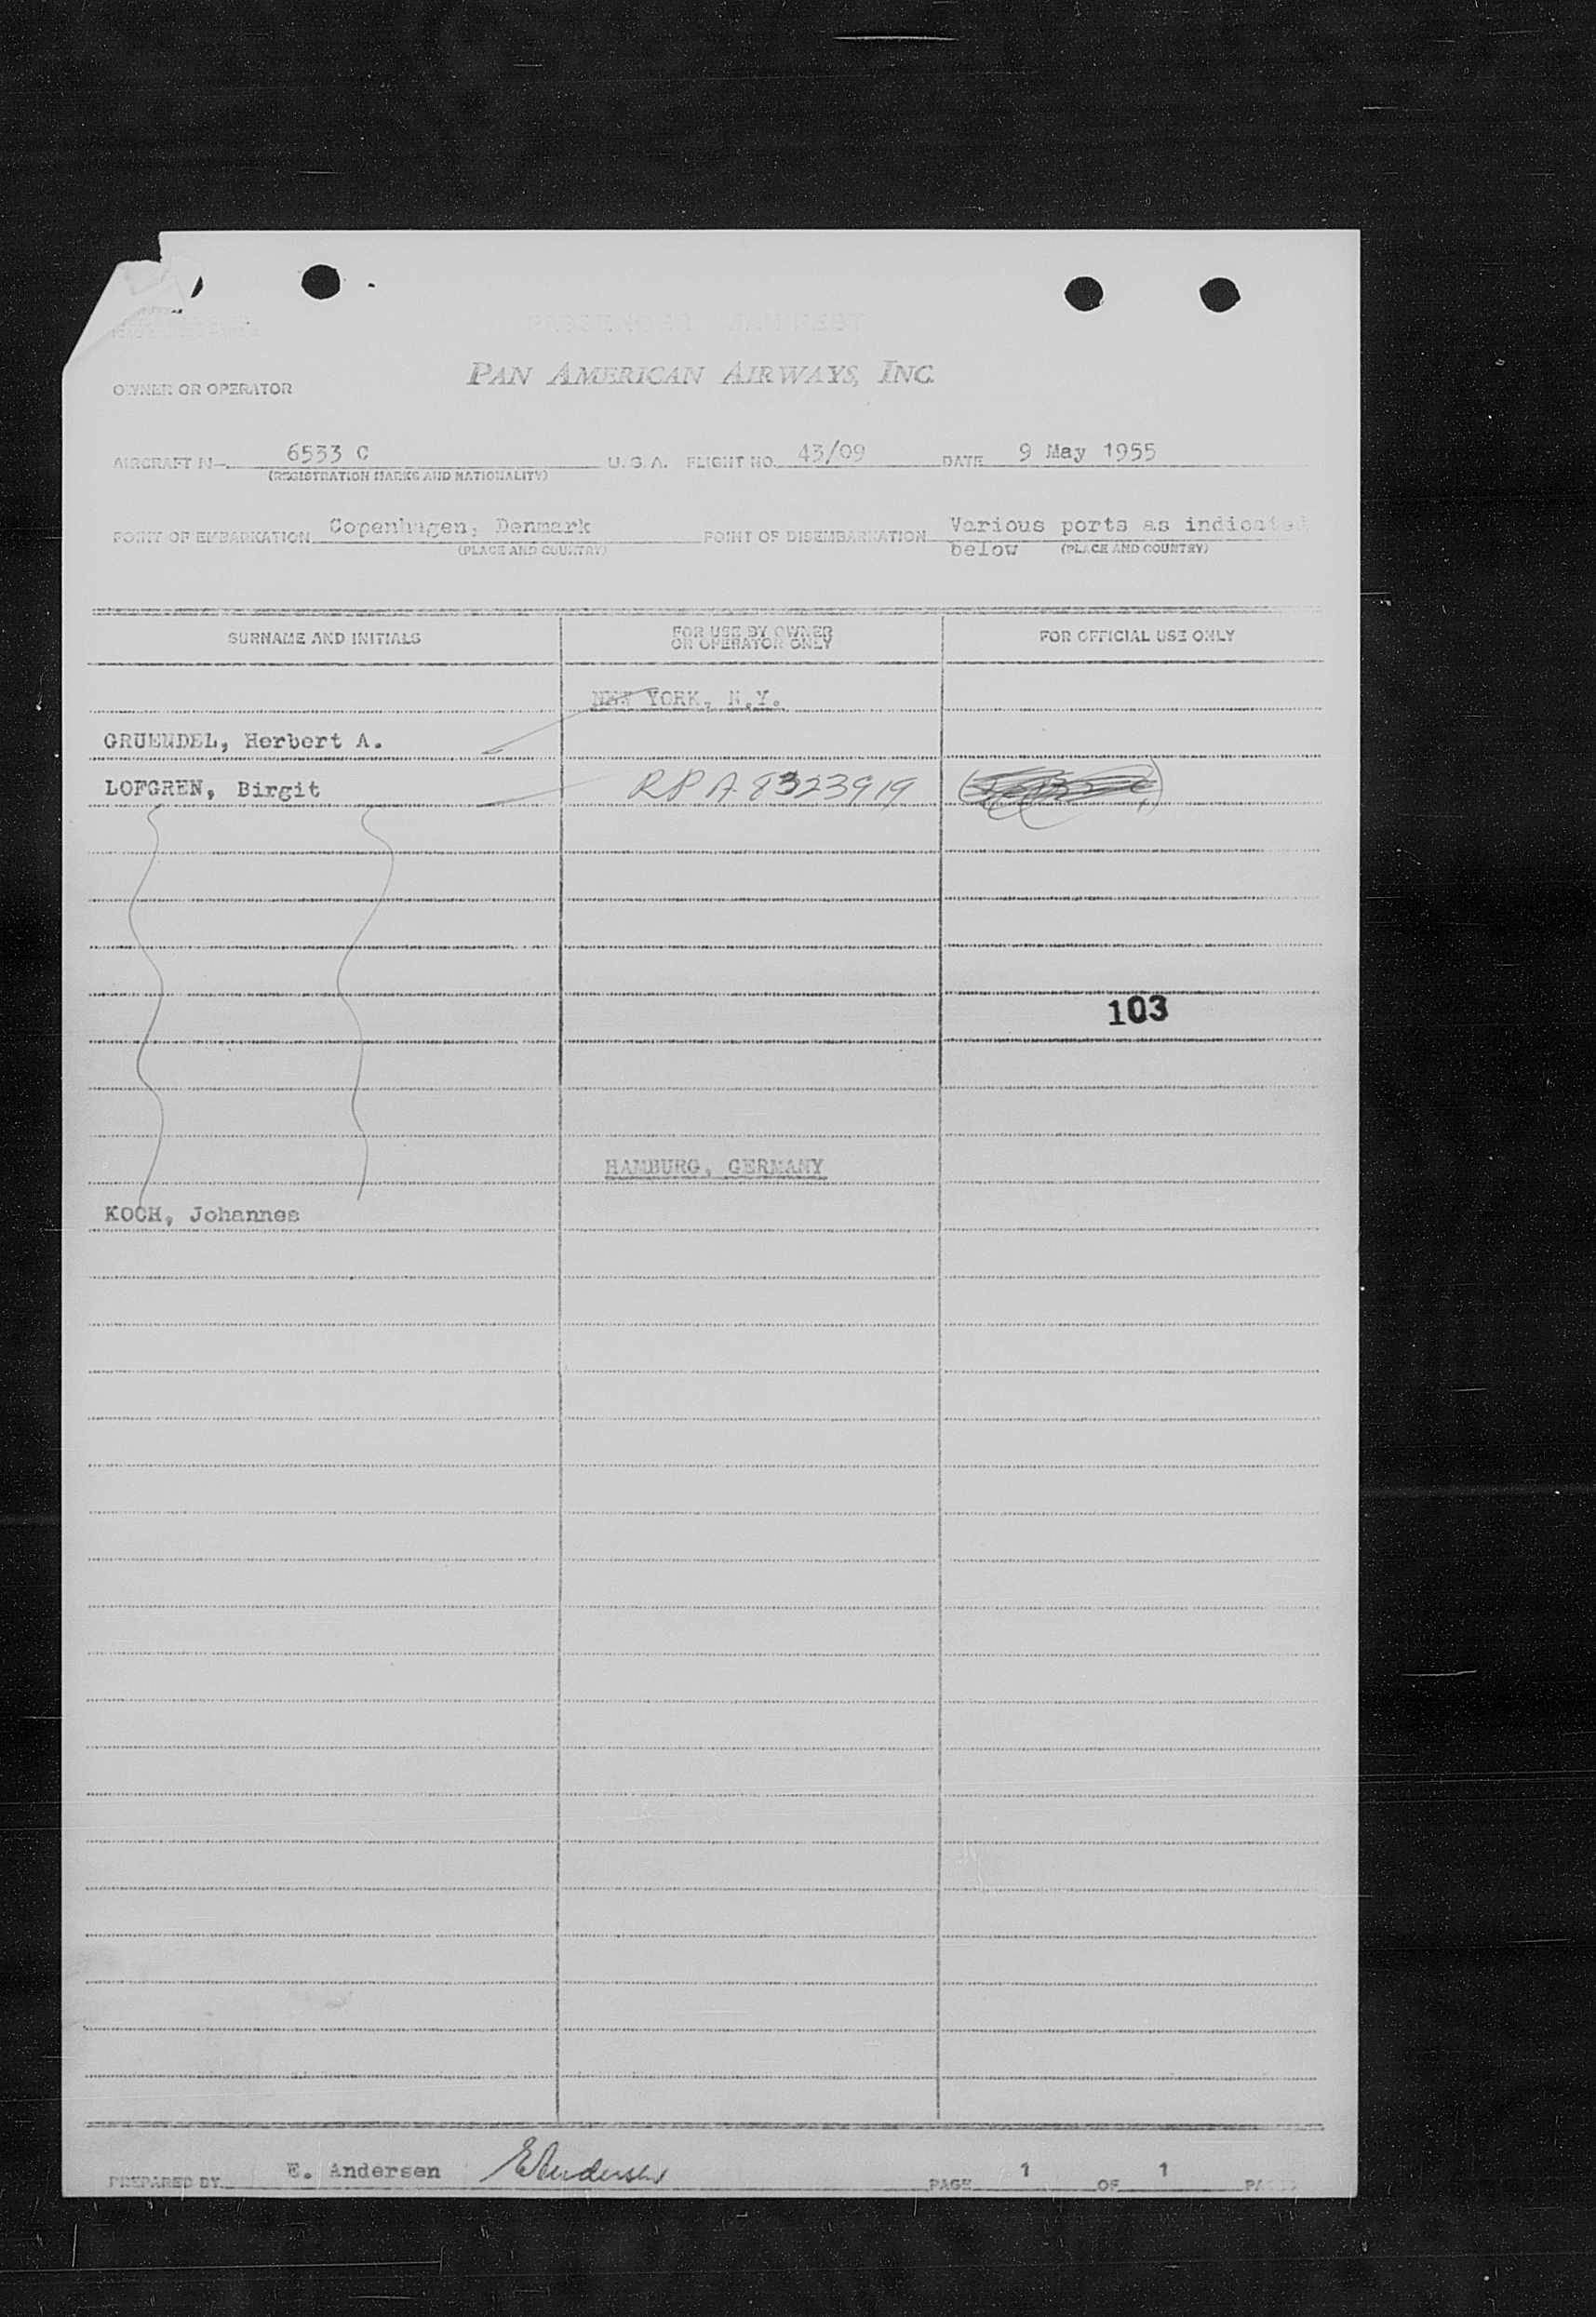 PASSENGER MANIFEST
PAN AMERICAN AIRWAYS, INC.
OWNER OR OPERATOR
AIRCRAFT N- 6533 C U.S.A. FLIGHT NO. 43/09 DATE 9 May 1955
(REGISTRATION MARKS AND NATIONALITY)
POINT OF EMBARKATION Copenhagen, Denmark POINT OF DISEMBARKATION Various ports as indicated
(PLACE AND COUNTRY) below (PLACE AND COUNTRY)
SURNAME AND INITIALS FOR USE BY OWNER OR OPERATOR ONLY FOR OFFICIAL USE ONLY
NEW YORK, N.Y.
GRUENDEL, Herbert A.
LOFGREN, Birgit RP A 8323919
103
HAMBURG, GERMANY
KOCH, Johannes
PREPARED BY E. Andersen EAndersen PAGE 1 OF 1 PAGES